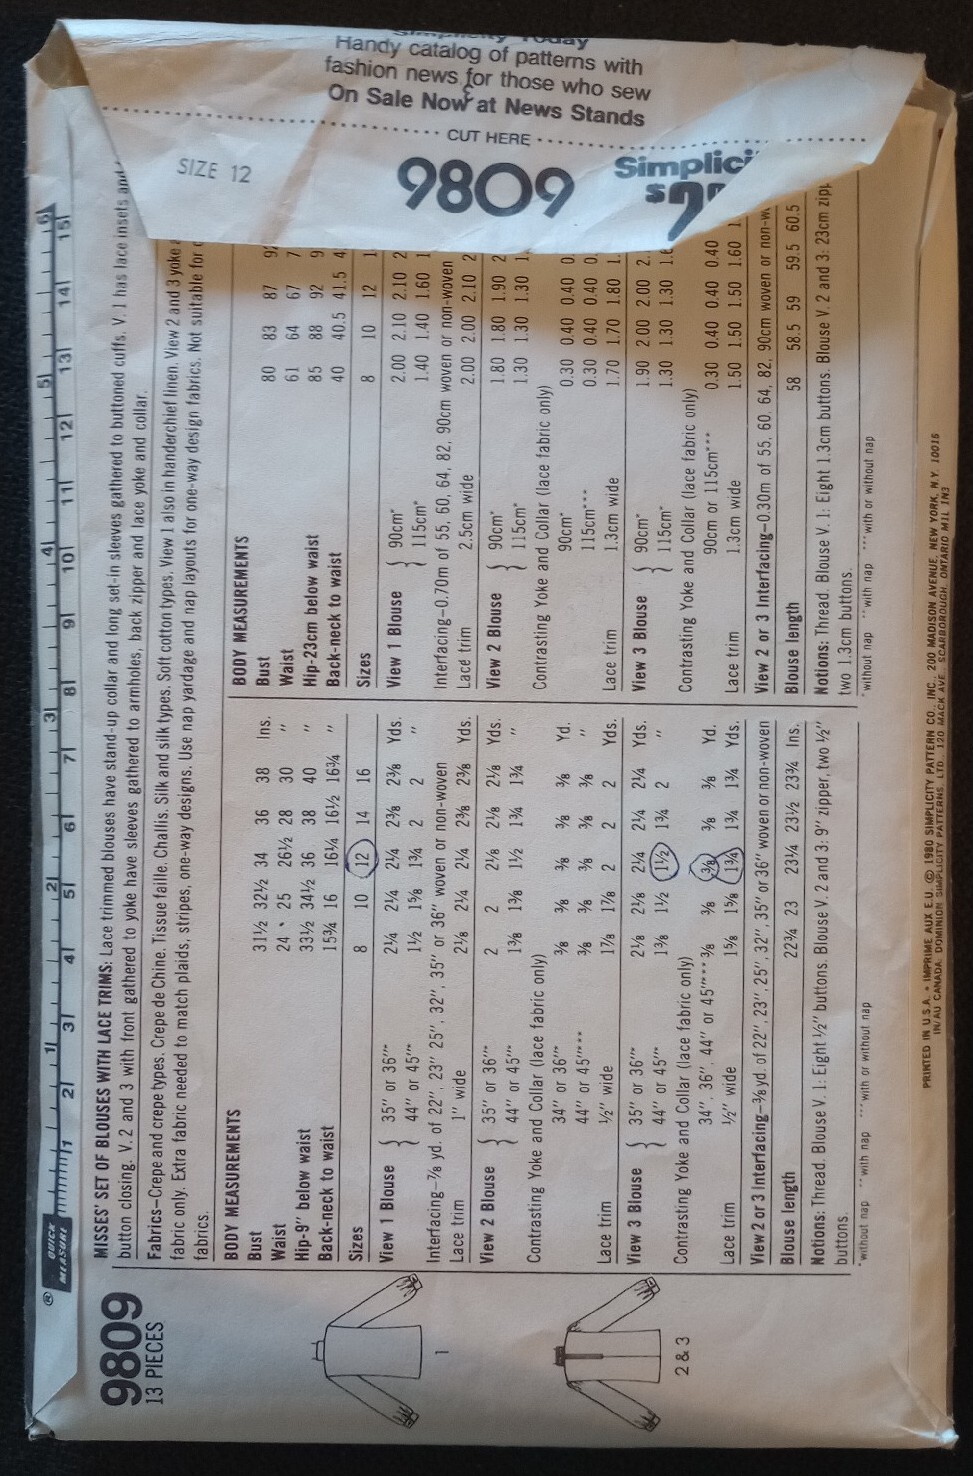 Simplicity Today
Handy catalog of patterns with
fashion news for those who sew
On Sale Now at News Stands
CUT HERE
SIZE 12
9809
Simplici
$2
® QUICK MEASURE
1 2 3 4 5 6
1 2 3 4 5 6 7 8 9 10 11 12 13 14 15
9809
13 PIECES
1
2 & 3
MISSES' SET OF BLOUSES WITH LACE TRIMS: Lace trimmed blouses have stand-up collar and long set-in sleeves gathered to buttoned cuffs. V. 1 has lace insets and
button closing. V. 2 and 3 with front gathered to yoke have sleeves gathered to armholes, back zipper and lace yoke and collar.
Fabrics—Crepe and crepe types. Crepe de Chine. Tissue faille. Challis. Silk and silk types. Soft cotton types. View 1 also in handerchief linen. View 2 and 3 yoke
fabric only. Extra fabric needed to match plaids, stripes, one-way designs. Use nap yardage and nap layouts for one-way design fabrics. Not suitable for
fabrics.
BODY MEASUREMENTS
Bust 31½ 32½ 34 36 38 Ins.
Waist 24 25 26½ 28 30 "
Hip-9" below waist 33½ 34½ 36 38 40 "
Back-neck to waist 15¾ 16 16¼ 16½ 16¾ "
Sizes 8 10 12 14 16
View 1 Blouse } 35" or 36"* 2¼ 2¼ 2¼ 2⅜ 2⅜ Yds.
44" or 45"* 1½ 1⅝ 1¾ 2 2 "
Interfacing—⅞ yd. of 22", 23" 25", 32", 35" or 36" woven or non-woven
Lace trim 1" wide 2⅛ 2¼ 2¼ 2⅜ 2⅜ Yds.
View 2 Blouse } 35" or 36"* 2 2 2⅛ 2⅛ 2⅛ Yds.
44" or 45"* 1⅜ 1⅜ 1½ 1¾ 1¾ "
Contrasting Yoke and Collar (lace fabric only)
34" or 36"* ⅜ ⅜ ⅜ ⅜ ⅜ Yd.
44" or 45"*** ⅜ ⅜ ⅜ ⅜ ⅜ "
Lace trim ½" wide 1⅞ 1⅞ 2 2 2 Yds.
View 3 Blouse } 35" or 36"* 2⅛ 2⅛ 2¼ 2¼ 2¼ Yds.
44" or 45"* 1⅜ 1½ 1½ 1¾ 2 "
Contrasting Yoke and Collar (lace fabric only)
34", 36", 44" or 45"*** ⅜ ⅜ ⅜ ⅜ ⅜ Yd.
Lace trim ½" wide 1⅝ 1⅝ 1¾ 1¾ 1¾ Yds.
View 2 or 3 Interfacing—⅜ yd. of 22", 23", 25", 32", 35" or 36" woven or non-woven
Blouse length 22¾ 23 23¼ 23½ 23¾ Ins.
Notions: Thread. Blouse V. 1: Eight ½" buttons. Blouse V. 2 and 3: 9" zipper, two ½"
buttons.
*without nap **with nap ***with or without nap
BODY MEASUREMENTS
Bust 80 83 87 92
Waist 61 64 67 7
Hip-23cm below waist 85 88 92 9
Back-neck to waist 40 40.5 41.5 4
Sizes 8 10 12 1
View 1 Blouse { 90cm* 2.00 2.10 2.10 2
115cm* 1.40 1.40 1.60 1
Interfacing—0.70m of 55, 60, 64, 82, 90cm woven or non-woven
Lace trim 2.5cm wide 2.00 2.00 2.10 2
View 2 Blouse { 90cm* 1.80 1.80 1.90 2
115cm* 1.30 1.30 1.30 1.
Contrasting Yoke and Collar (lace fabric only)
90cm* 0.30 0.40 0.40 0
115cm*** 0.30 0.40 0.40 0.
Lace trim 1.3cm wide 1.70 1.70 1.80 1.
View 3 Blouse { 90cm* 1.90 2.00 2.00 2.
115cm* 1.30 1.30 1.30 1.6
Contrasting Yoke and Collar (lace fabric only)
90cm or 115cm*** 0.30 0.40 0.40 0.40
Lace trim 1.3cm wide 1.50 1.50 1.50 1.60 1
View 2 or 3 Interfacing—0.30m of 55, 60, 64, 82, 90cm woven or non-w
Blouse length 58 58.5 59 59.5 60.5
Notions: Thread. Blouse V. 1: Eight 1.3cm buttons. Blouse V. 2 and 3: 23cm zipp
two 1.3cm buttons.
*without nap **with nap ***with or without nap
PRINTED IN U.S.A. • IMPRIME AUX E.U. © 1980 SIMPLICITY PATTERN CO., INC., 200 MADISON AVENUE, NEW YORK, N.Y. 10016
IN/AU CANADA, DOMINION SIMPLICITY PATTERNS, LTD. 120 MACK AVE., SCARBOROUGH, ONTARIO M1L 1N3